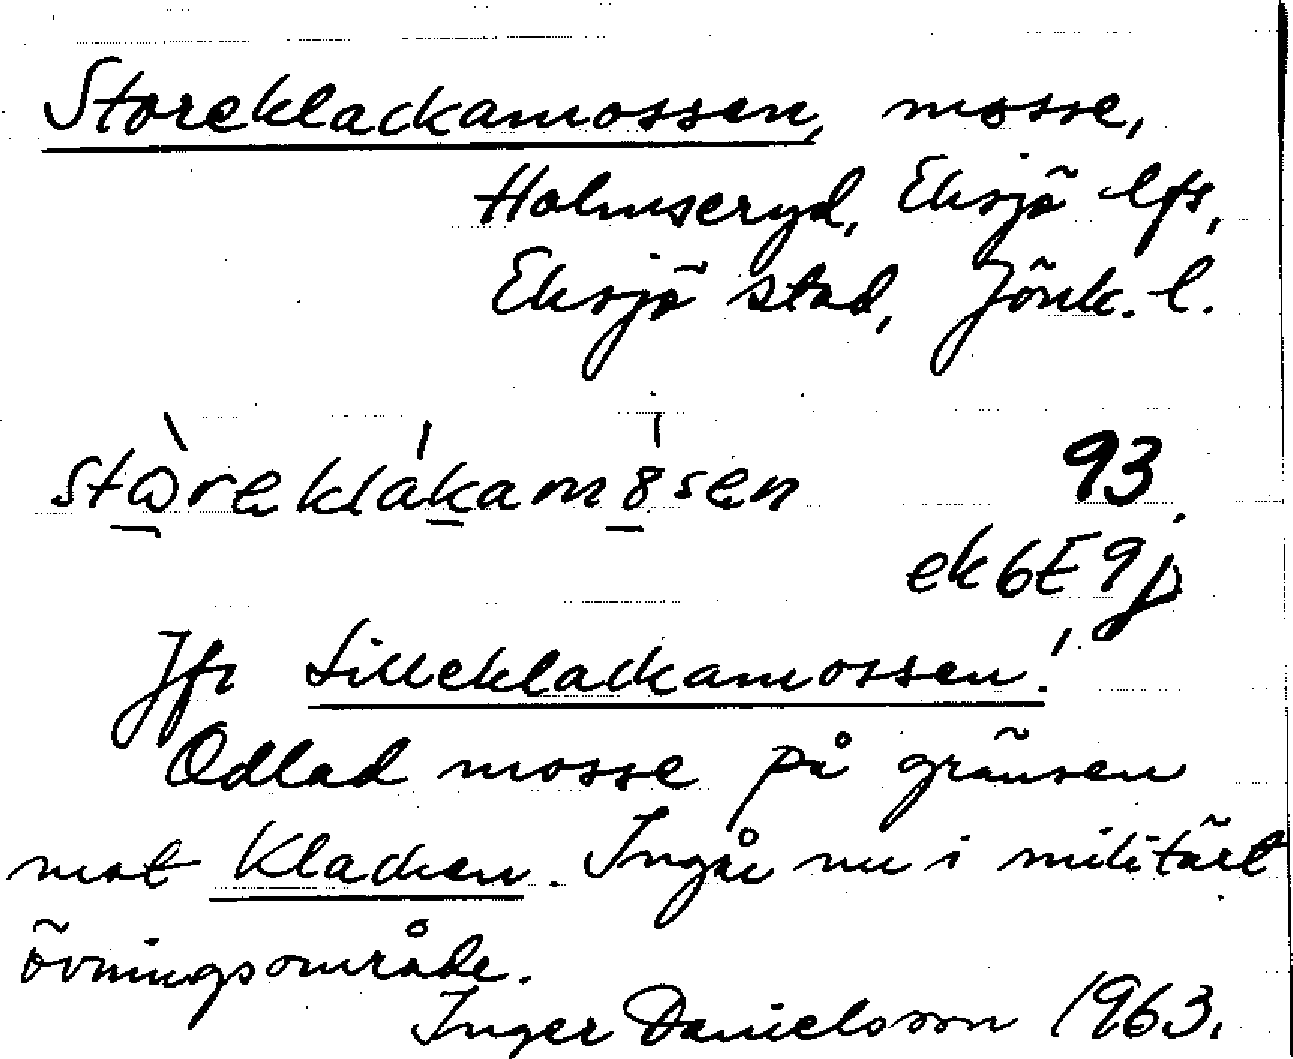 Storeklackamossen, mosse,
Holmseryd, Eksjö lfs,
Eksjö stad, Jönk. l.
93.
ek 6E 9j
Jfr Lilleklackamossen!
Odlad mosse på gränsen
mot Klacken. Ingår nu i militärt
övningsområde.
Inger Danielsson 1963.